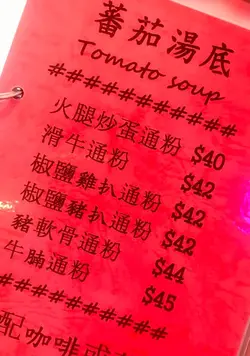 蕃茄湯底
Tomato soup
###########
火腿炒蛋通粉 $40
滑牛通粉 $42
椒鹽雞扒通粉 $42
椒鹽豬扒通粉 $42
豬軟骨通粉 $44
牛腩通粉 $45
###########
配咖啡或